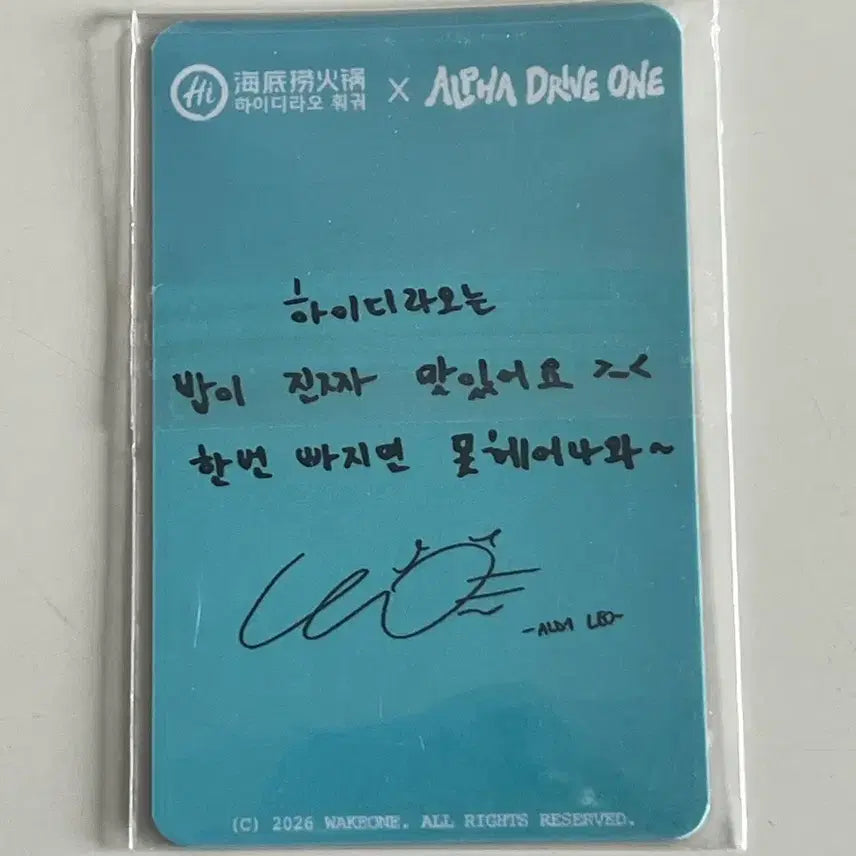 Hi 海底捞火锅 하이디라오 훠궈 X ALPHA DRIVE ONE
하이디라오는
밥이 진짜 맛있어요 >_<
한번 빠지면 못헤어나와~
-ALD1 LEO-
(C) 2026 WAKEONE. ALL RIGHTS RESERVED.